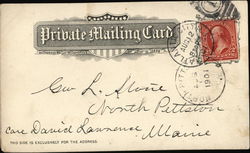 Private Mailing Card
Geo. L.
North Pittston
care David Lawrence, Maine
THIS SIDE IS EXCLUSIVELY FOR THE ADDRESS.
1901